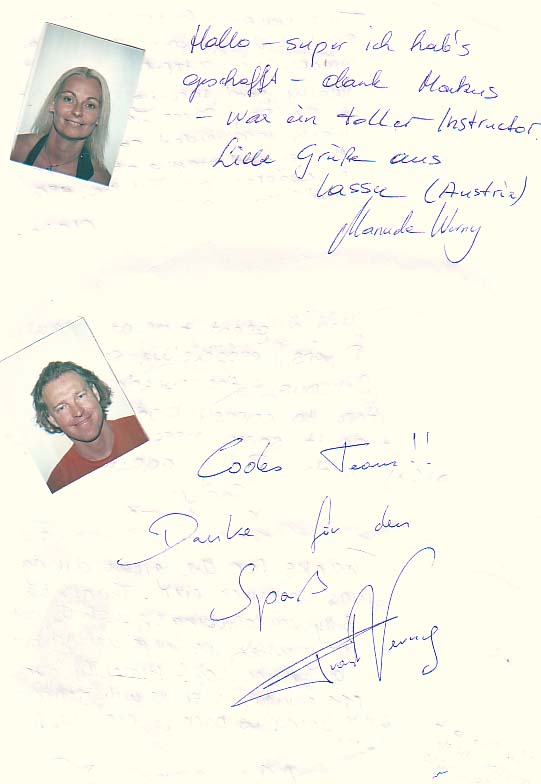 Hallo – super ich hab's
geschafft – dank Markus
– war ein toller Instructor.
Liebe Grüße aus
(Austria)
Manuela
Cooles Team!!
Danke für den
Spaß